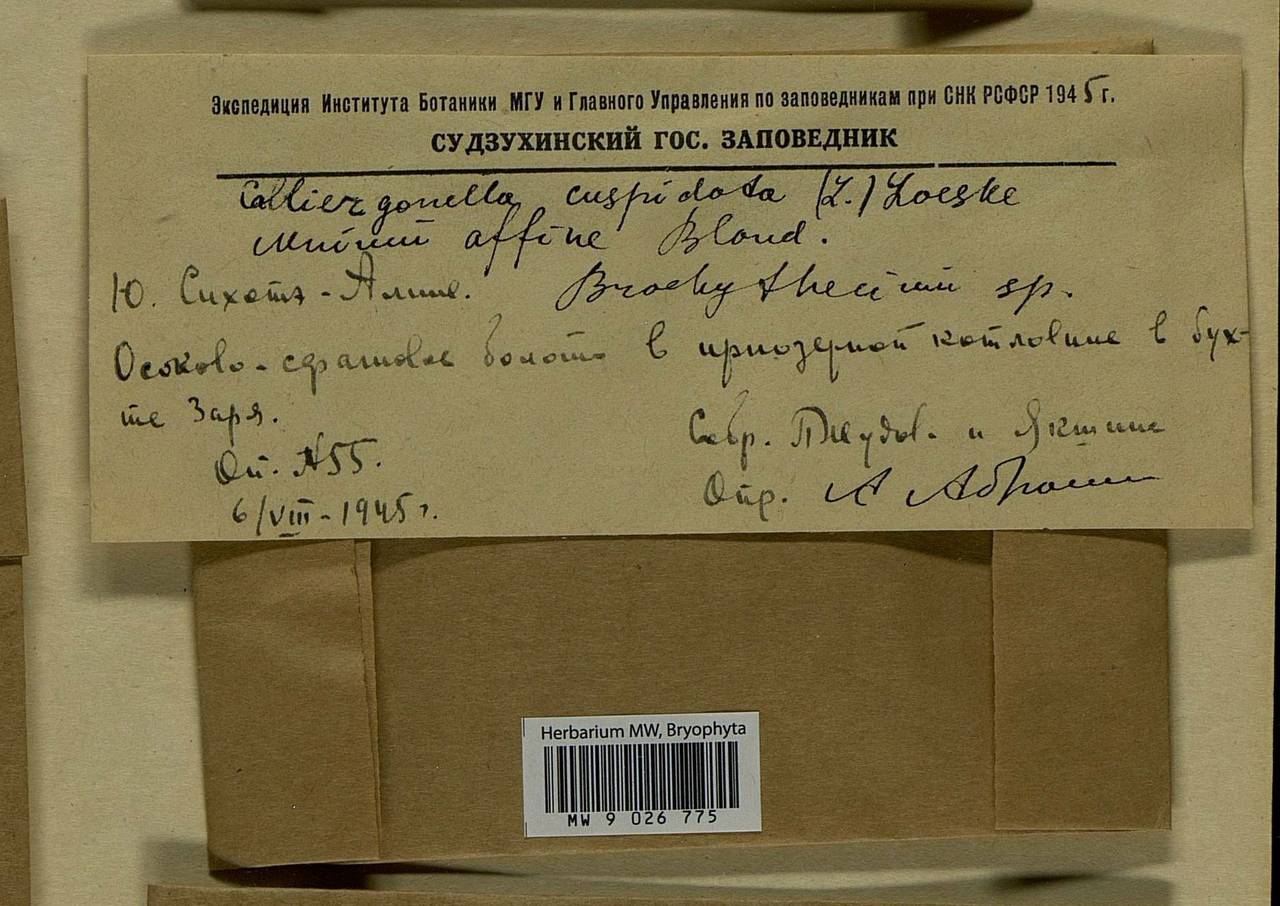 Экспедиция Института Ботаники МГУ и Главного Управления по заповедникам при СНК РСФСР 1945 г.
СУДЗУХИНСКИЙ ГОС. ЗАПОВЕДНИК
Calliergonella cuspidata (L.) Loeske
Mnium affine Bland.
Ю. Сихотэ-Алинь. Brachythecium sp.
Осоково-сфагновое болото в приозерной котловине в бух-
те Заря.
Собр. и
Оп. №55.
Опр. А Абрамов
6/VIII-1945 г.
Herbarium MW, Bryophyta
MW 9 026 775